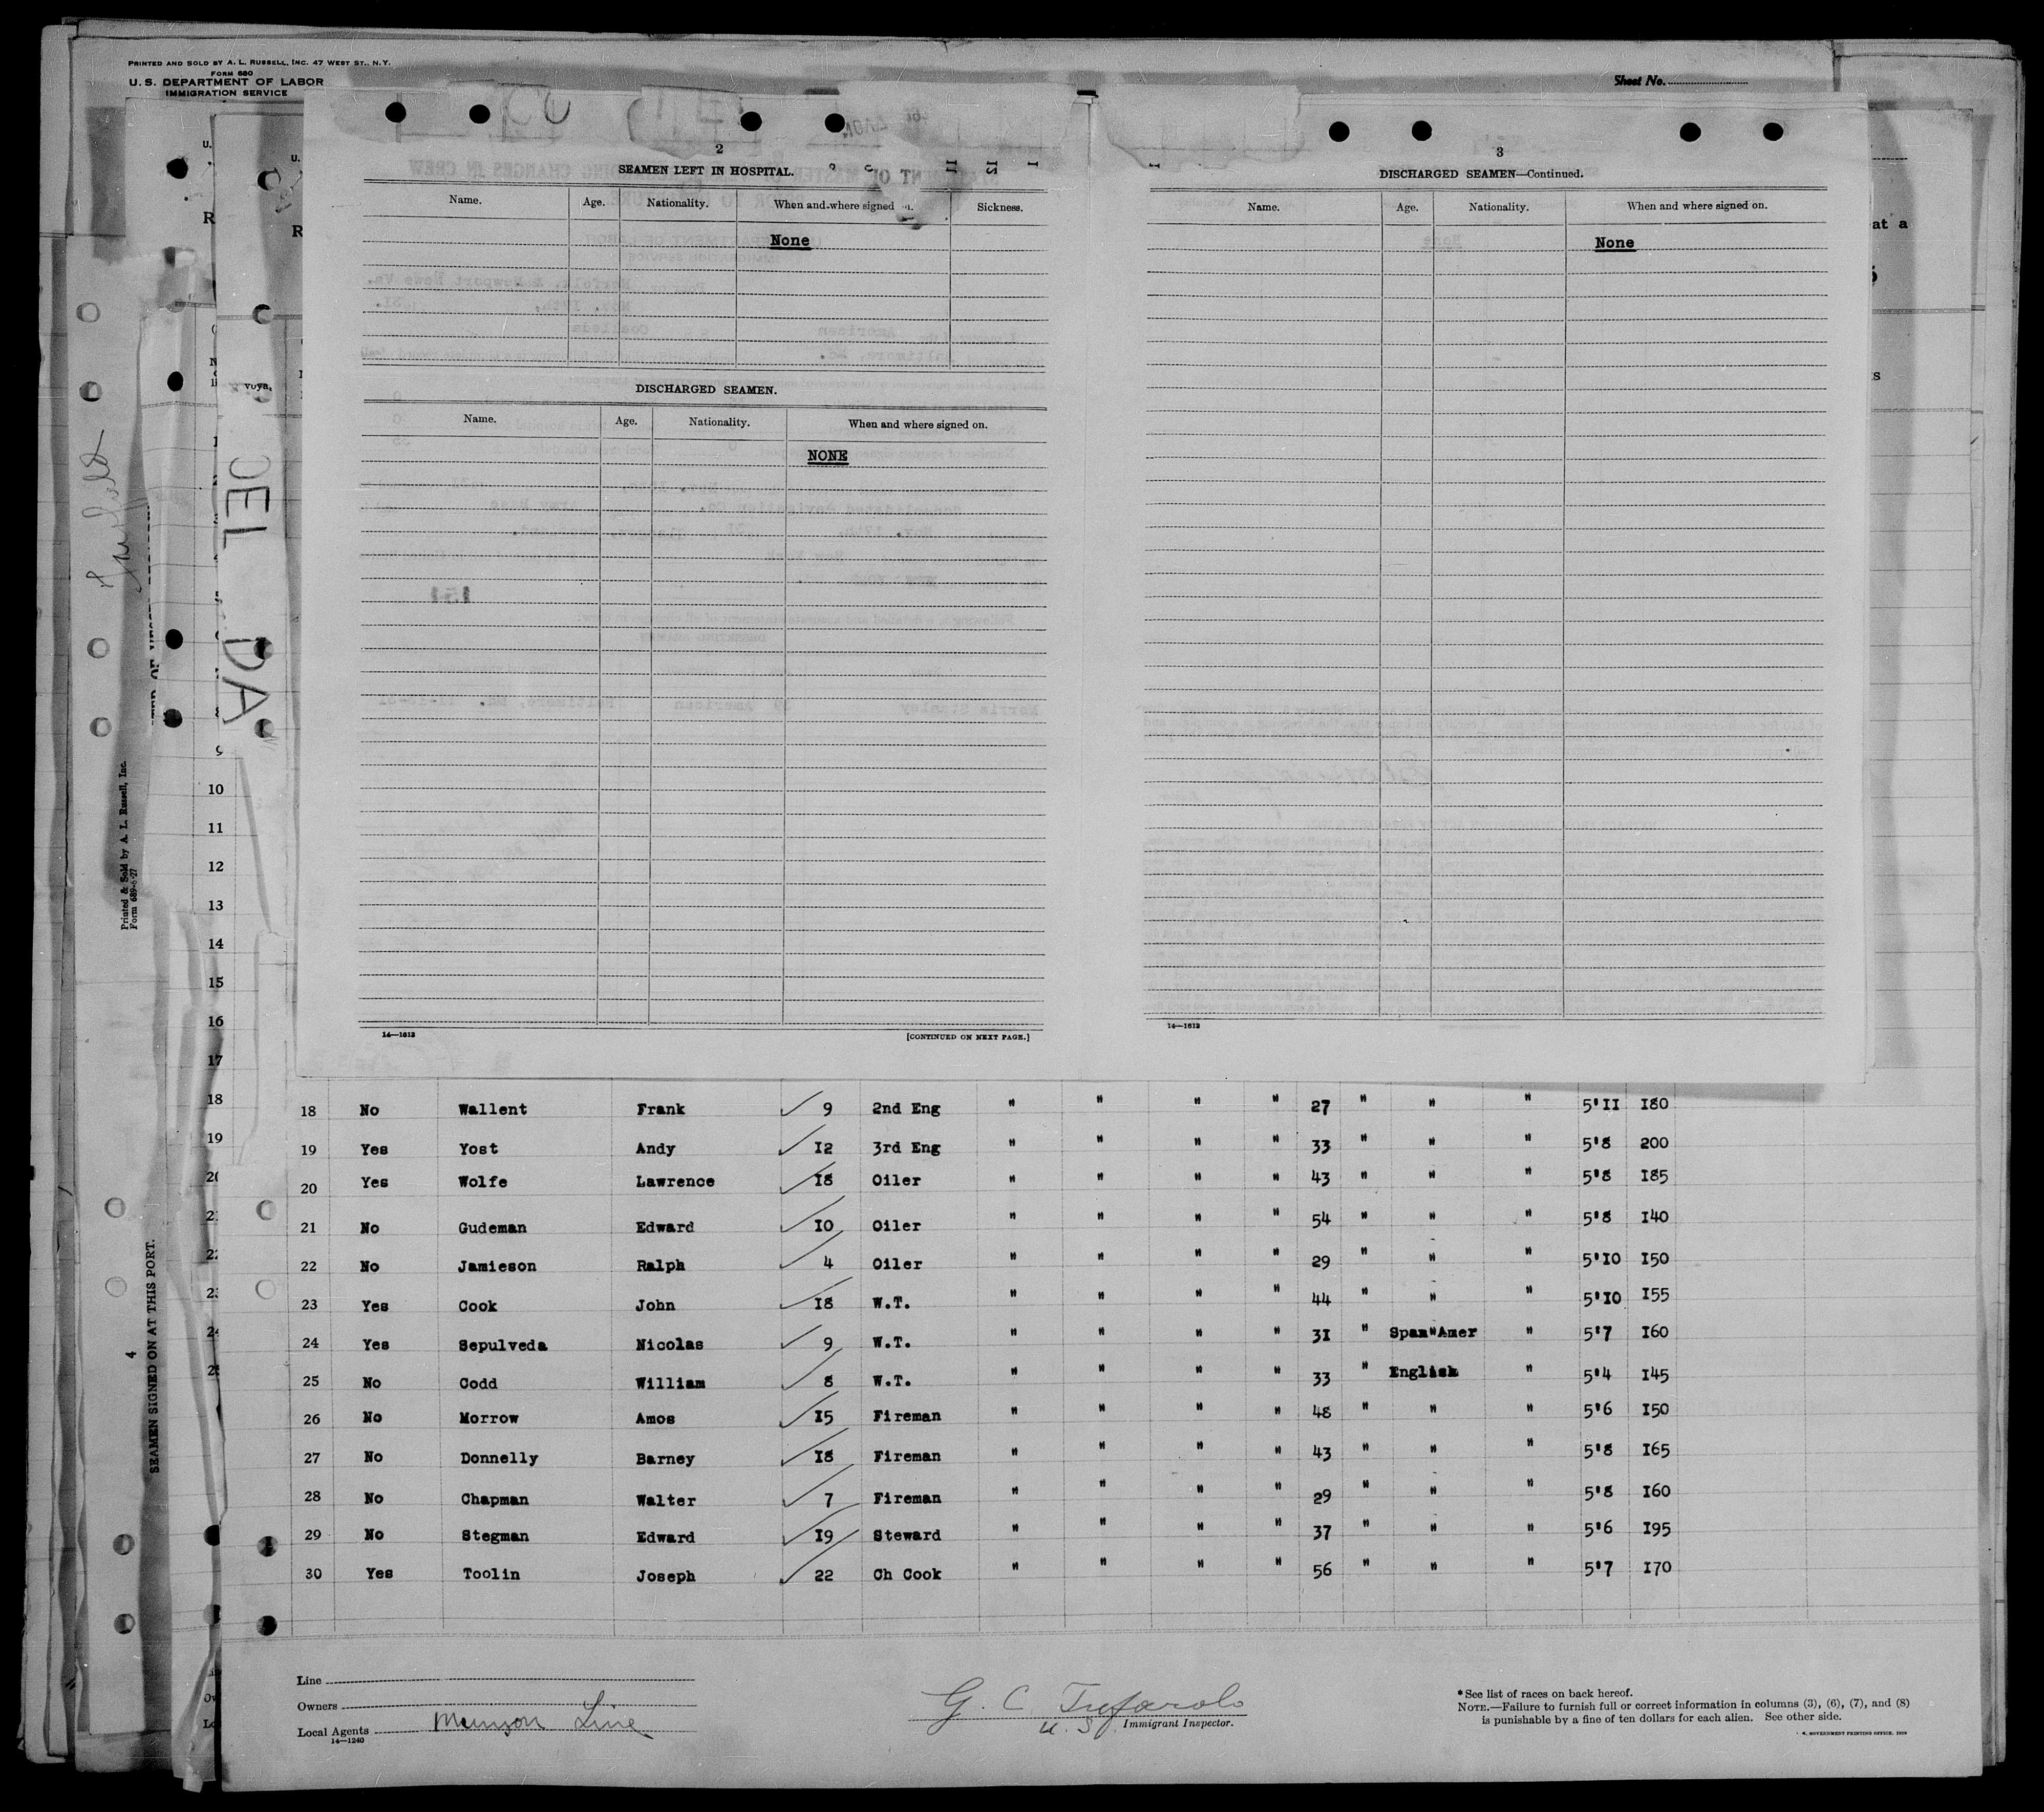 PRINTED AND SOLD BY A. L. RUSSELL, INC. 47 WEST ST., N.Y.
FORM 680
U. S. DEPARTMENT OF LABOR
IMMIGRATION SERVICE
Sheet No.
2
SEAMEN LEFT IN HOSPITAL.
Name. Age. Nationality. When and where signed Sickness.
None
DISCHARGED SEAMEN.
Name. Age. Nationality. When and where signed on.
NONE
14—1613 [CONTINUED ON NEXT PAGE.]
3
DISCHARGED SEAMEN—Continued.
Name. Age. Nationality. When and where signed on.
None
14—1613
at a
voya
DEL DA
Printed & Sold by A. L. Russell, Inc.
Form 689-6-27
4
SEAMEN SIGNED ON AT THIS PORT.
9
10
11
12
13
14
15
16
17
18
19
18 No Wallent Frank 9 2nd Eng " " " " 27 " " " 5'II I80
19 Yes Yost Andy I2 3rd Eng " " " " 33 " " " 5'8 200
20 Yes Wolfe Lawrence I8 Oiler " " " " 43 " " " 5'8 I85
21 No Gudeman Edward IO Oiler " " " " 54 " " " 5'8 I40
22 No Jamieson Ralph 4 Oiler " " " " 29 " " " 5'IO I50
23 Yes Cook John I8 W.T. " " " " 44 " " " 5'IO I55
24 Yes Sepulveda Nicolas 9 W.T. " " " " 3I " Span"Amer " 5'7 I60
25 No Codd William 8 W.T. " " " " 33 " English " 5'4 I45
26 No Morrow Amos I5 Fireman " " " " 48 " " " 5'6 I50
27 No Donnelly Barney I8 Fireman " " " " 43 " " " 5'8 I65
28 No Chapman Walter 7 Fireman " " " " 29 " " " 5'8 I60
29 No Stegman Edward I9 Steward " " " " 37 " " " 5'6 I95
30 Yes Toolin Joseph 22 Ch Cook " " " " 56 " " " 5'7 I70
Line
Owners
Local Agents Munson Line
14—1240
G. C. Tufarolo
U. S. Immigrant Inspector.
*See list of races on back hereof.
NOTE.—Failure to furnish full or correct information in columns (3), (6), (7), and (8)
is punishable by a fine of ten dollars for each alien. See other side.
S. GOVERNMENT PRINTING OFFICE. 1929